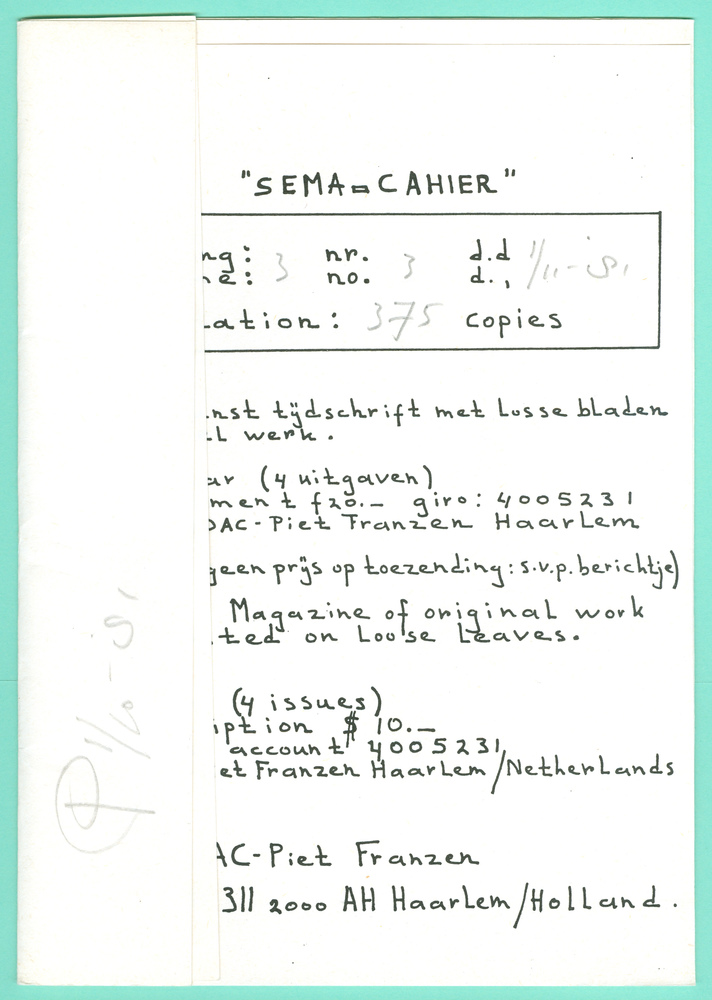 "SEMA=CAHIER"
ng: 3 nr. 3 d.d 1/11-'81
e: no. d.,
ation: 375 copies
nst tijdschrift met losse bladen
l werk.
ar (4 uitgaven)
ment f20.- giro: 4005231
DAC-Piet Franzen Haarlem
geen prijs op toezending: s.v.p. berichtje)
Magazine of original work
ted on Loose Leaves.
(4 issues)
iption $ 10.-
account 4005231
et Franzen Haarlem/Netherlands
AC-Piet Franzen
311 2000 AH Haarlem/Holland.